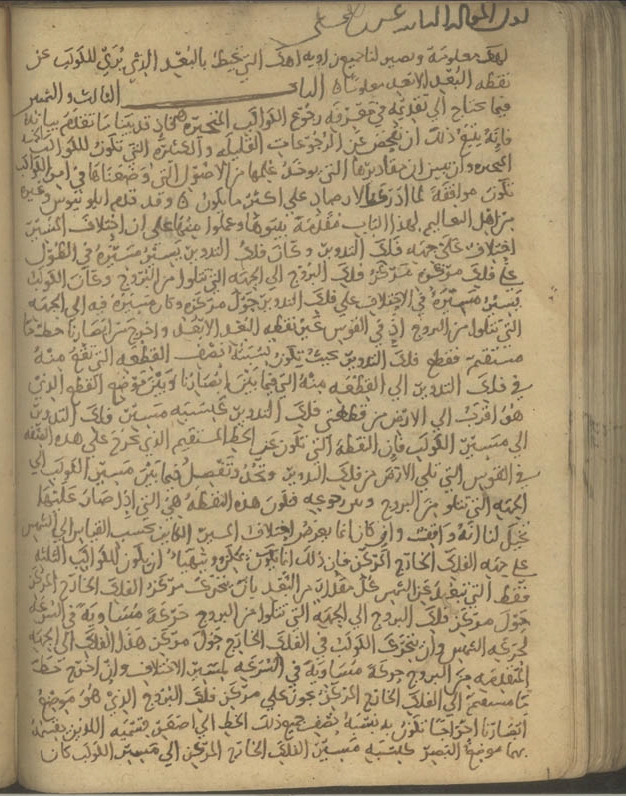 لهك معلومة وتصير لنا جميع زاوية اهك التي تحيط بالبعد الذي يُرى للكوكب عن
نقطه البُعد الابعد معلومة الثالث والتمييز
فيما يحتاج الى تقديمه في معرفة رجوع الكواكب المتحيرة فاذ قد بينا ما تقدم بيانه
فانه ينبغي ذلك ان نفحص عن الرجوعات القليلة والكثيرة التي تكون للكواكب
المتحيره وان نبين ان مقاديرها التي يوجد علمها من الاصول التي وضعناها في امر الكواكب
تكون موافقة لما ادركا بالارصاد على اكثر ما يكون وقد قدم ابلونيوس وغيره
من اهل التعاليم لهذا الباب مقدمة بينوها وعملوا منها على ان اختلاف المسير
اختلاف على جهه فلك التدوير وكان فلك التدوير يسير مسيره في الطول
على فلك مركزه مركز فلك البروج الى الجهه التي تتلوا من البروج وكان الكوكب
يسير مسيره في الاختلاف على فلك التدوير حول مركزه وكان مسيره فيه الى الجهه
التي تتلوا من البروج اذ في القوس عن نقطه البعد الابعد واخرج من ابصارنا خط ما
مستقيم فقطع فلك التدوير بحيث تكون نسبة نصف القطعه التي تقع منه
في فلك التدوير الى القطعه منه التي فيما بين ابصارنا وبين موضع القطع الذي
هو اقرب الى الارض من قطعتي فلك التدوير كنسبة مسير فلك التدوير
الى مسير الكوكب فان النقطه التي تكون عن الخط المستقيم الذي يخرج على هذه الصفه
في القوس التي تلي الارض من فلك التدوير وتحد وتفصل فيما بين مسير الكوكب الى
الجهه التي تتلو من البروج وبين رجوعه فتكون هذه النقطه هي التي اذا صار عليها
يخيل لنا انه واقف وان كان انما يعرض اختلاف المسير الكاين بحسب القياس الى الشمس
على جهه الفلك الخارج المركز فان ذلك انما يكون ممكنا ومتهيا ان يكون للكواكب الثلثه
فقط التي تبعد عن الشمس كل مقدار من البعد بان يتحرك مركز الفلك الخارج المركز
حول مركز فلك البروج الى الجهه التي تتلوا من البروج حركة مساوية في السرعه
لحركه الشمس وان يتحرك الكوكب في الفلك الخارج حول مركز هذا الفلك الى الجهه
المتقدمه من البروج حركة مساوية في السرعه لمسير الاختلاف وان اخرج خط
ما مستقيم الى الفلك الخارج المركز يجوز على مركز فلك البروج الذي هو موضع
ابصارنا اخراجا تكون به نسبة نصف جميع ذلك الخط الى اصغر قسميه اللذين يقسمه
بهما موضع البصر كنسبة مسير الفلك الخارج المركز الى مسير الكوكب كان